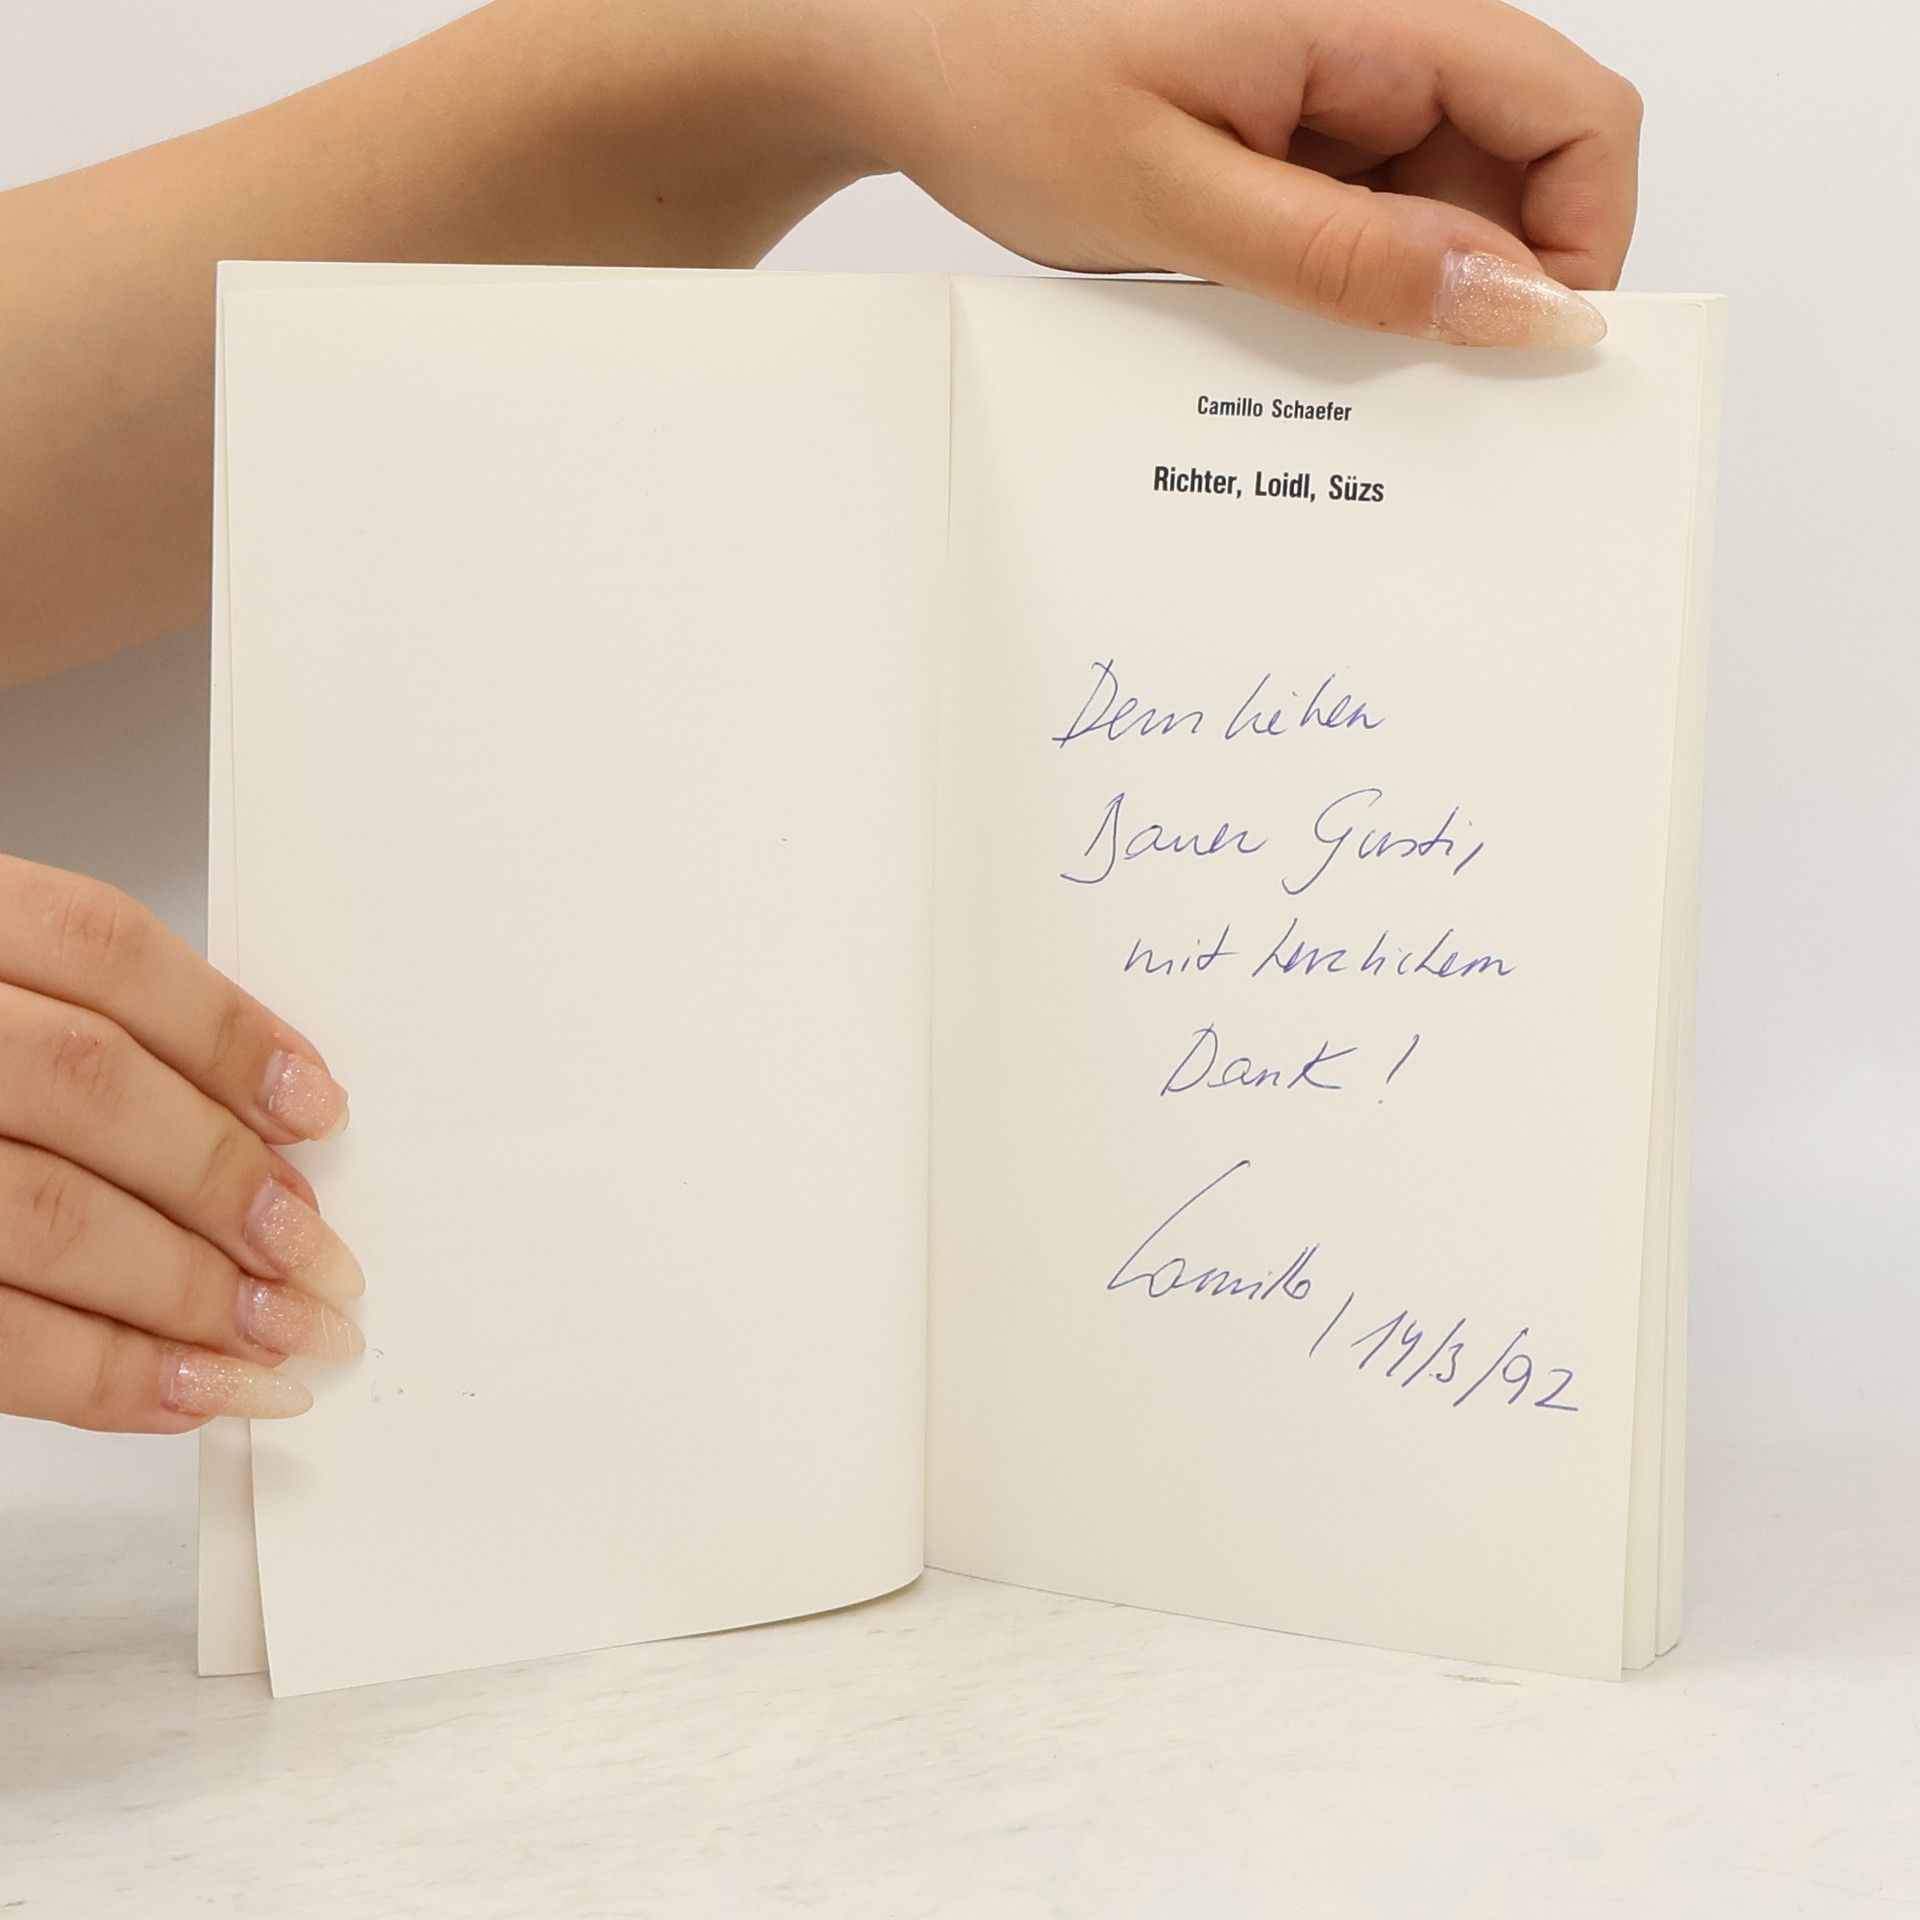 Camillo Schaefer
Richter, Loidl, Süzs
Dem lieben
Bauer Gusti,
mit herzlichem
Dank!
Camillo, 14/3/92